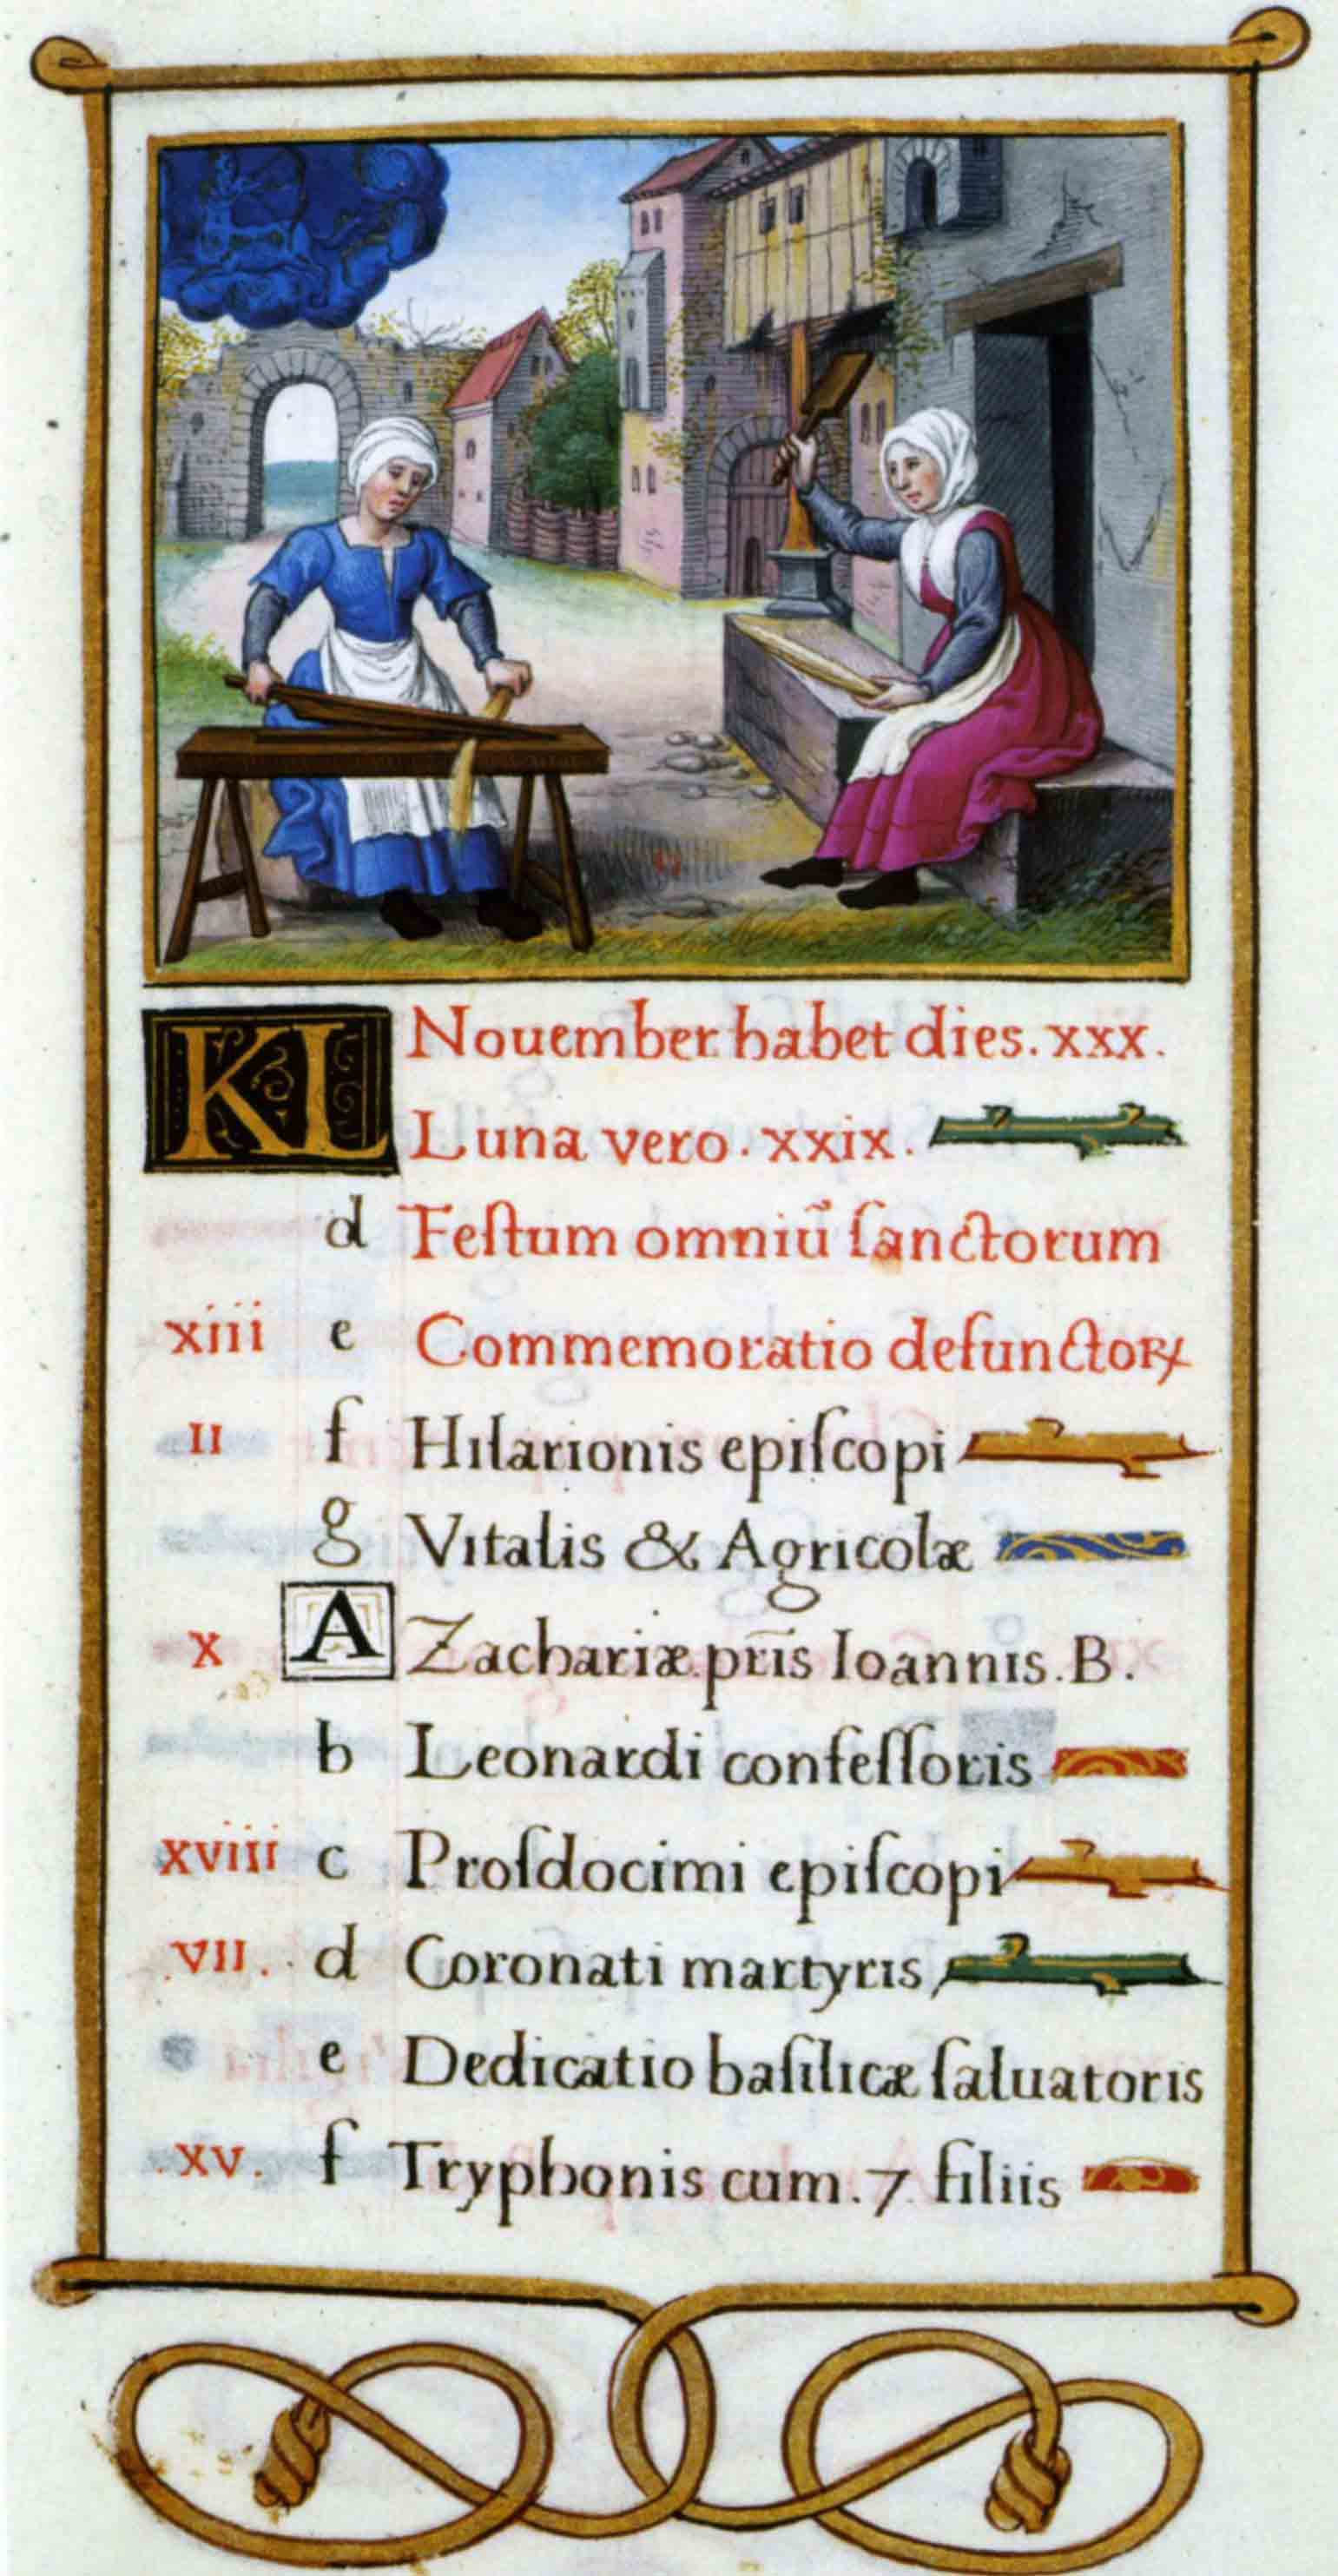 KL Nouember habet dies. xxx.
Luna vero. xxix.
d Feſtum omniū ſanctorum
xiii e Commemoratio defunctoꝝ
II f Hilarionis epiſcopi
g Vitalis & Agricolæ
x A Zachariæ pr̄is Ioannis. B.
b Leonardi confeſſoris
xviii c Proſdocimi epiſcopi
.VII. d Coronati martyris
e Dedicatio baſilicæ ſaluatoris
.xv. f Tryphonis cum. 7 filiis